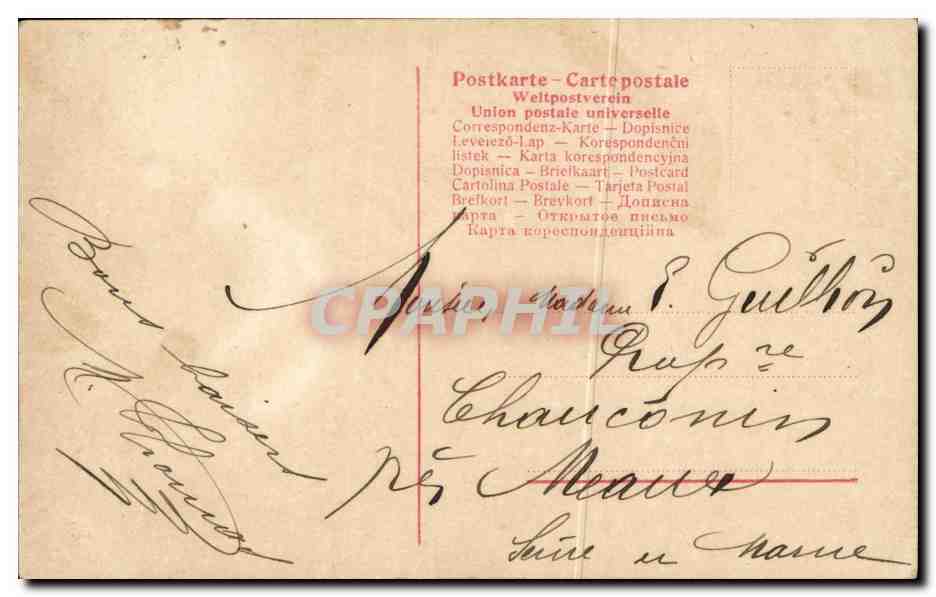 Postkarte – Carte postale
Weltpostverein
Union postale universelle
Correspondenz-Karte — Dopisnice
Levelező-Lap — Korespondenční
listek — Karta korespondencyjna
Dopisnica — Briefkaart — Postcard
Cartolina Postale — Tarjeta Postal
Brefkort — Brevkort — Дописна
карта — Открытое письмо
Карта кореспонденційна
Monsieur Madame E. Guilhou
Prop re
Chauconin
près Meaux
Seine et Marne
Bons baisers
CPAPHIL